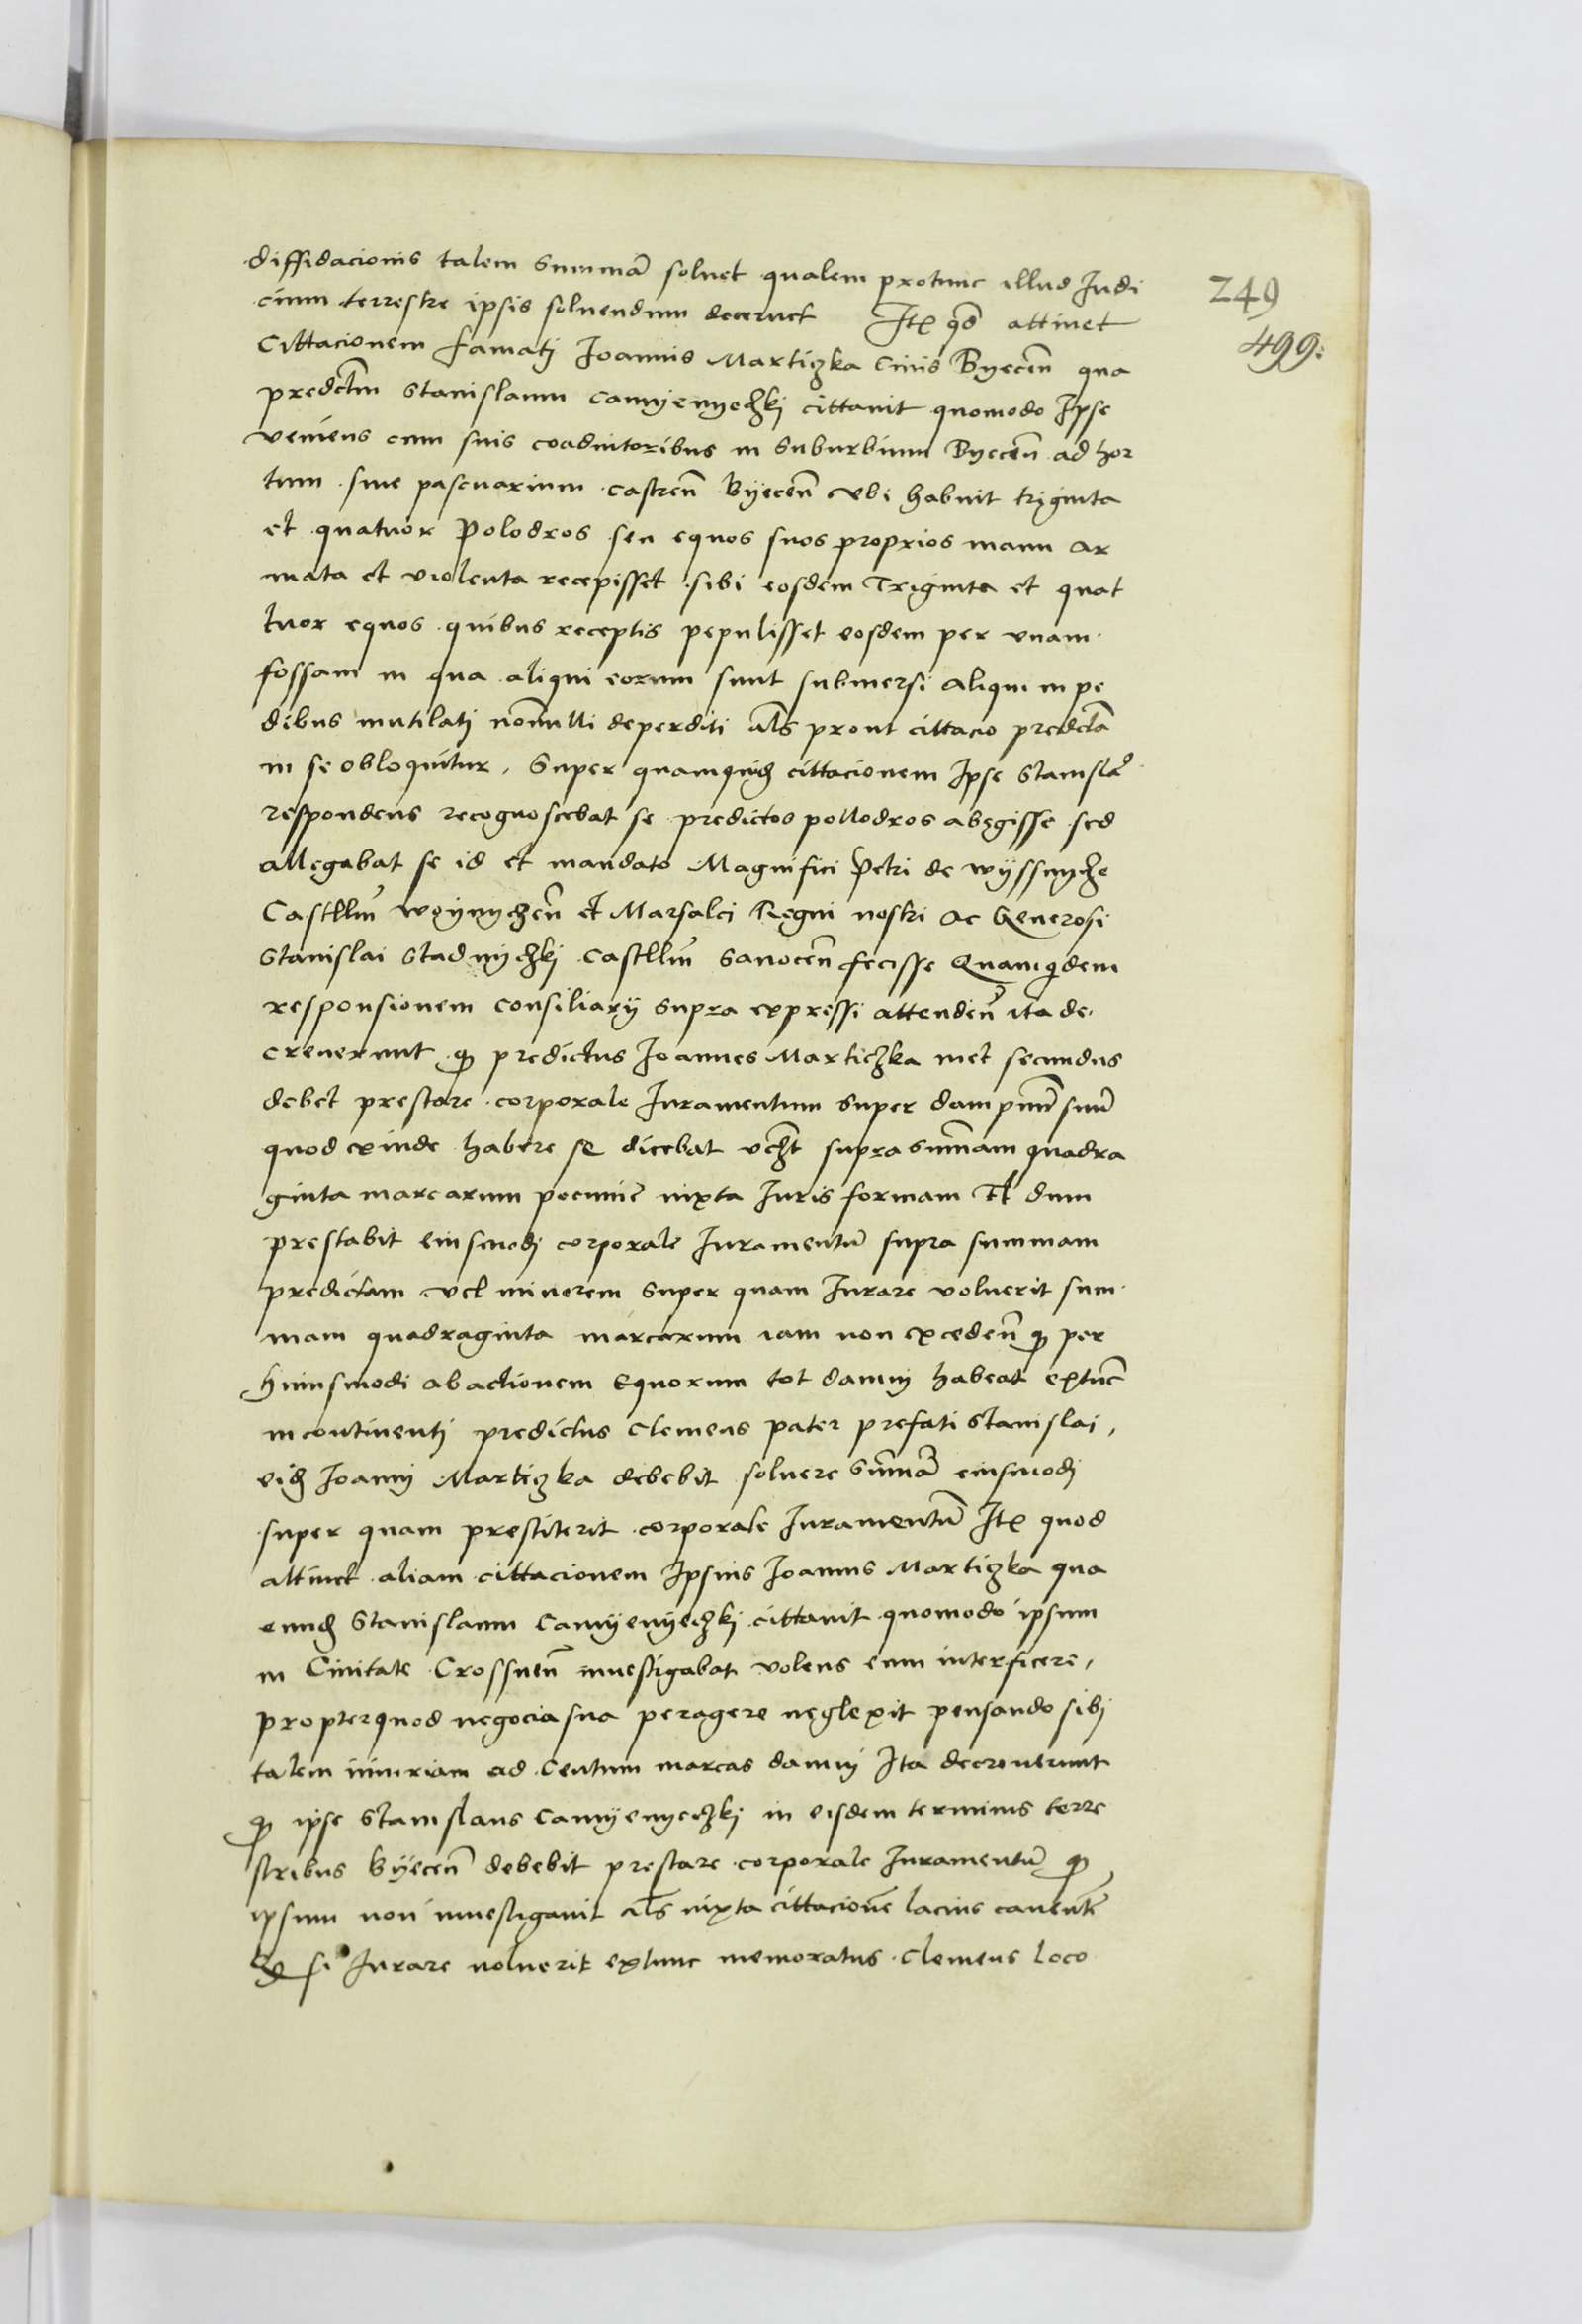 diffidacionis talem Summā soluet qualem protunc illud Judi
cium terrestre ipsis soluendum decernet Itē qd̄ attinet
249
499:
Cittacionem famatj Joannis Marticzka Ciuis Byecen̄ qua
predctm̄ Stanislaum Camyenyeczkj cittauit quomodo Ipse
veniens cum suis coadiutoribus in Suburbium Byecen̄ ad hor
tum siue pascuarium castren̄ Byecen̄ vbi habuit triginta
et quatuor Polodros seu equos suos proprios manu ar
mata et violenta recepisset sibi eosdem Triginta et quat
tuor equos quibus receptis pepulisset eosdem per vnam
fossam in qua aliqui eorum sunt submersi aliqui in pe
dibus mutilatj nōnulli deperditi al̄s prout cittacio predctā
in se obloquitur. Super quamquidē cittacionem Ipse Stanislā
respondens recognoscebat se predictos pollodros abęgisse sed
allegabat se id et mandato Magnifici Petri de wyssnycze
Castllm̄ woynyczen̄ et Marsalci Regni nostri ac Generosi
Stanislai Stadnyczkj Castllm̄ Sanocen̄ fecisse Quamqdem
responsionem consiliarij supra expressi attenden̄ ita de
creuerunt qȝ predictus Joannes Martichka met secundus
debet prestare corporale Iuramentum super dampnūm suū
quod exinde habere se dicebat vcz̄t supra Sum̄am quadra
ginta marcarum pecunie iuxta Iuris formam Et dum
prestabit eiusmodj corporale Iuramentū supra summam
predictam vel minorem super quam Iurare voluerit sum
mam quadraginta marcarum iam non exceden̄ qȝ per
huiusmodi abactionem Equorum tot damnj habeat extūc
incontinentj predictus Clemens pater prefati Stanislai,
eidē Joannj Marticzka debebit soluere Sum̄ā eiusmodj
super quam prestiterit corporale Iuramentū Itē quod
attinet aliam cittacionem Ipsius Joannis Marticzka qua
eundē Stanislaum Camyenyeczkj cittauit quomodo ipsum
in Ciuitate Crossnen̄ inuestigabat volens eum interficere,
propterquod negocia sua peragere neglexit pensando sibj
talem iniuriam ad Centum marcas damnj Ita decreuerunt
qȝ ipse Stanislaus Camyenyeczkj in eisdem terminis terre
stribus Byecen̄ debebit prestare corporale Iuramentū qȝ
ipsum non inuestigauit al̄s iuxta cittacionē lacius cauentē
Qd si Iurare noluerit extunc memoratus Clemens loco